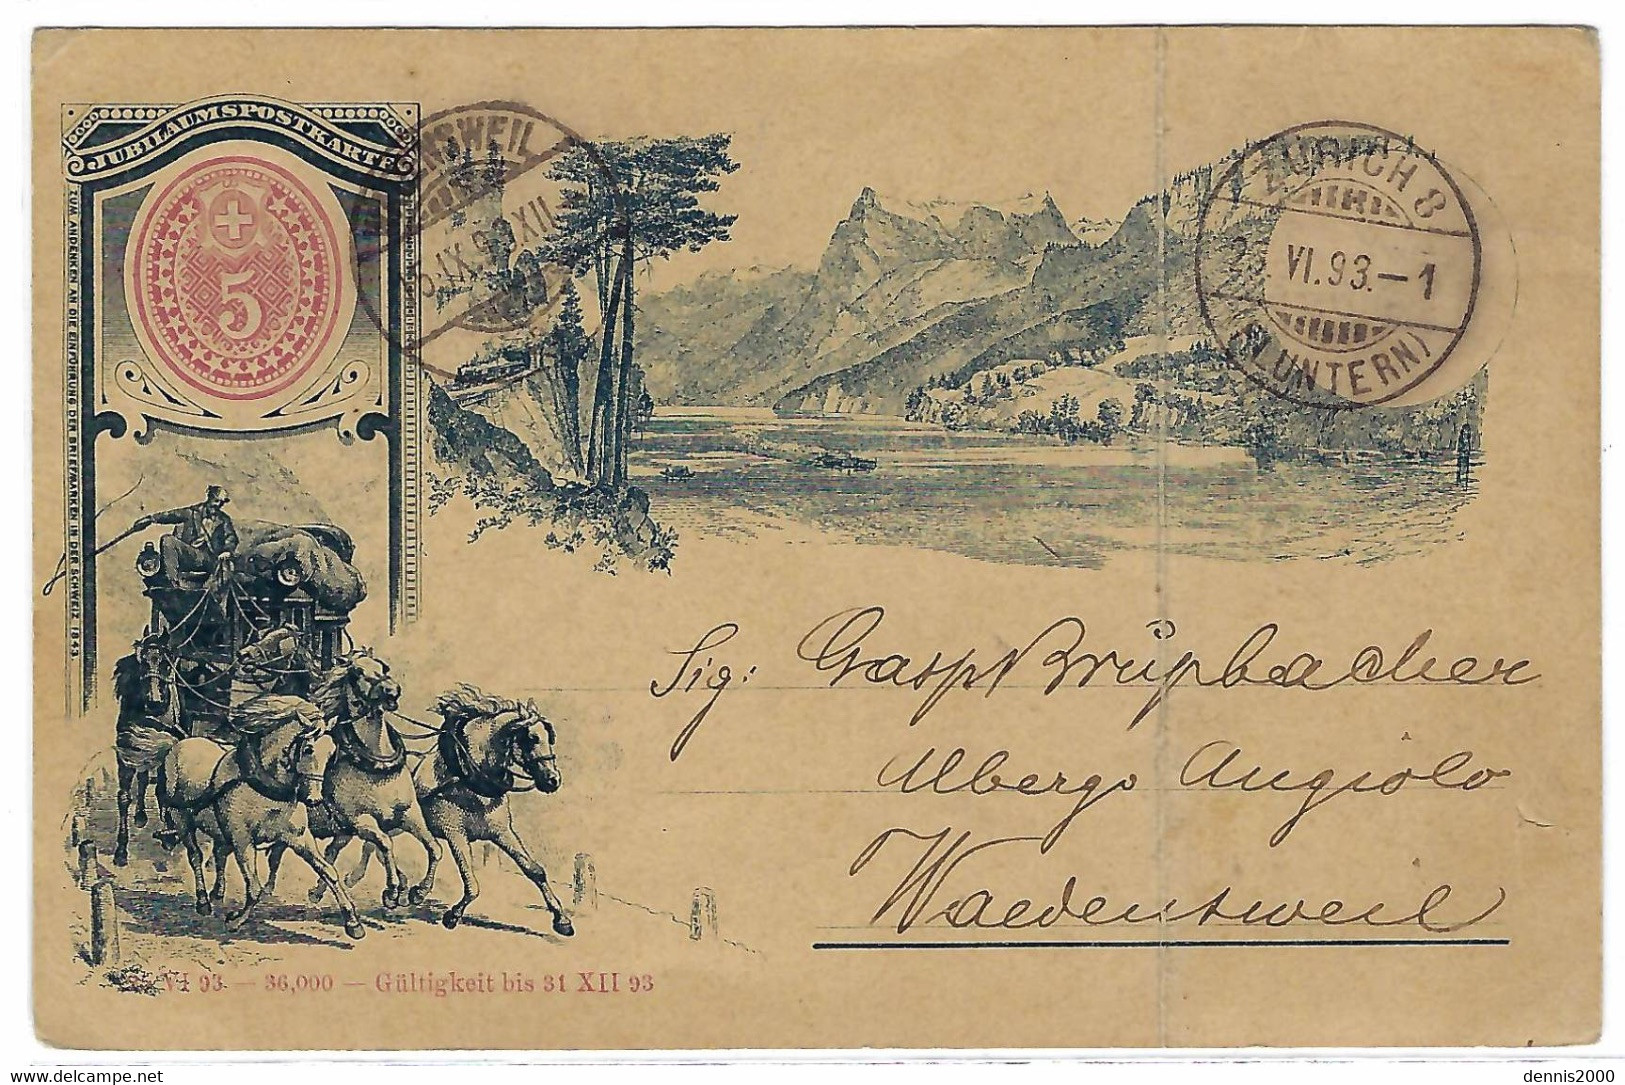 JUBILÄUMSPOSTKARTE
5
ZUM ANDENKEN AN DIE EINFÜHRUNG DER BRIEFMARKEN IN DER SCHWEIZ 1843.
IX.93 XII
ZÜRICH 8
VI.93.–1
(FLUNTERN)
Sig: Gasp Brüpbacher
Albergo Angiolo
Waedensweil
VI 93 — 36,000 — Gültigkeit bis 31 XII 93
www.delcampe.net
dennis2000